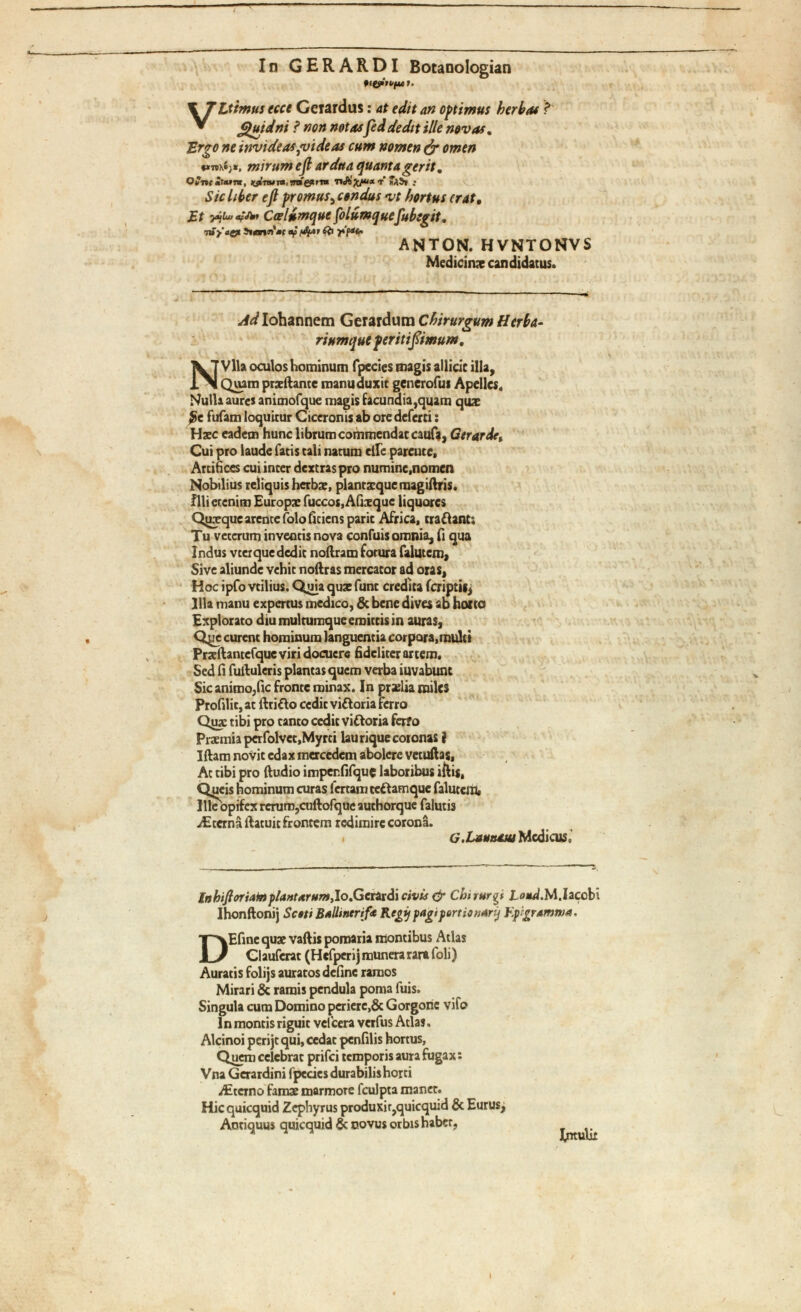 In GERARDI Botanologian
VLtimus ecce Gerardus: at edit an optimus herbas?
Quidni? non notas ſed dedit ille novas.
Ergo ne invideas, videas cum nomen & omen
mirum eſt ardua quanta gerit.
Sic liber eſt promus, condus vt hortus erat,
Et Cœlúmque ſolúmque ſubegit.
ANTON. HVNTONVS
Medicinæ candidatus.
Ad Iohannem Gerardum Chirurgum Herba-
riumque peritißimum.
NVlla oculos hominum ſpecies magis allicit illa,
Quam præſtante manu duxit generoſus Apelles.
Nulla aures animoſque magis facundia, quam quæ
Se fuſam loquitur Ciceronis ab ore deſerti:
Hæc eadem hunc librum commendat cauſa, Gerarde,
Cui pro laude ſatis tali natum eſſe parente,
Artifices cui inter dextras pro numine, nomen
Nobilius reliquis herbæ, plantæque magiſtris.
Illi etenim Europæ ſuccos, Aſiæque liquores
Quæque arente ſolo ſitiens parit Africa, tractant:
Tu veterum inventis nova confuis omnia, ſi qua
Indus vterque dedit noſtram fotura ſalutem,
Sive aliunde vehit noſtras mercator ad oras,
Hoc ipſo vtilius. Quia quæ ſunt credita ſcriptis,
Illa manu expertus medico, & bene dives ab horto
Explorato diu multumque emittis in auras,
Que curent hominum languentia corpora, multi
Præſtanteſque viri docuere fideliter artem.
Sed ſi ſuſtuleris plantas quem verba iuvabunt
Sic animo, ſic fronte minax. In prælia miles
Proſilit, at ſtricto cedit victoria ferro
Quæ tibi pro tanto cedit victoria ferro
Præmia perſolvet, Myrti laurique coronas?
Iſtam novit edax mercedem abolere vetuſtas,
At tibi pro ſtudio impenſiſque laboribus iſtis,
Queis hominum curas ſertam tectamque ſalutem,
Ille opifex rerum, cuſtoſque authorque ſalutis
Æterna ſtatuit frontem redimire corona.
Medicus.
In hiſtoriam plantarum, Io. Gerardi civis & Chirurgi Lond. M. Iacobi
Ihonſtonij Scoti Regij pagi portionarij Epigramma.
DEſine quæ vaſtis pomaria montibus Atlas
Clauſerat (Heſperij munera rara ſoli)
Auratis folijs auratos deſine ramos
Mirari & ramis pendula poma ſuis.
Singula cum Domino periere, & Gorgone viſo
In montis riguit veſcera verſus Atlas.
Alcinoi perijt qui, cedat penſilis hortus,
Quem celebrat priſci temporis aura fugax:
Vna Gerardini ſpecies durabilis horti
Æterno famæ marmore ſculpta manet.
Hic quicquid Zephyrus produxit, quicquid & Eurus,
Antiquus quicquid & novus orbis habet,
Intulit